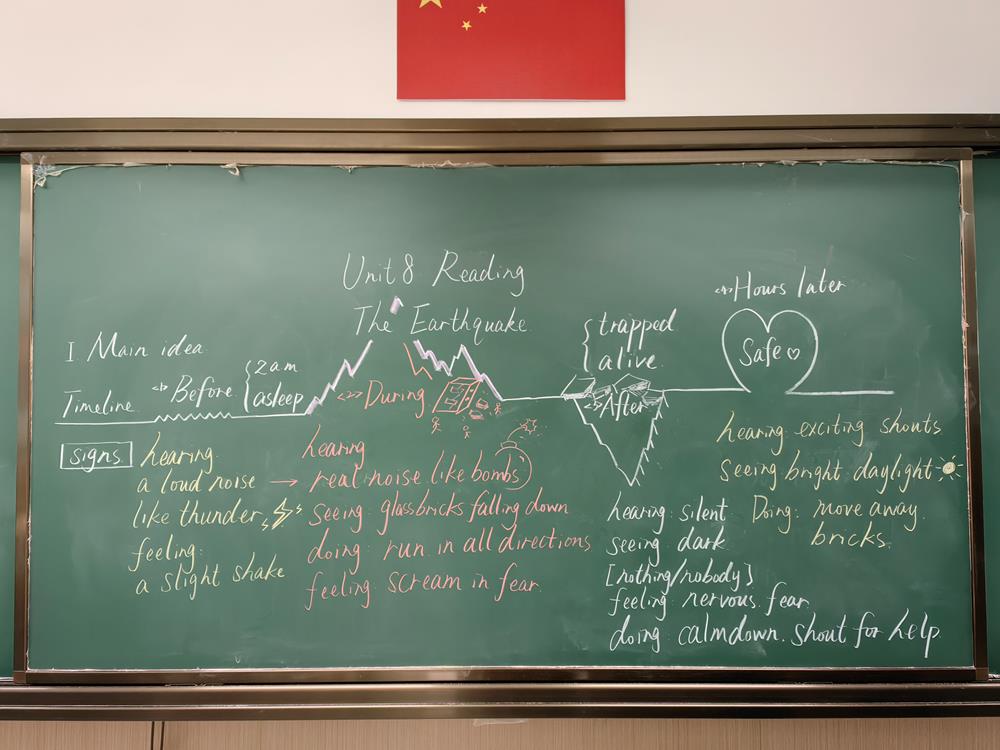 Unit 8 Reading
The Earthquake
I. Main idea
Timeline
<1> Before
2am
asleep
signs
hearing:
a loud noise →
like thunder
feeling:
a slight shake
<2> During
hearing
real noise like bombs
seeing: glass bricks falling down
doing: run in all directions
feeling: scream in fear.
trapped
alive
<3> After
hearing: silent
seeing dark
[nothing/nobody]
feeling: nervous. fear
doing: calmdown. shout for help.
<4> Hours later
Safe
hearing: exciting shouts
Seeing bright daylight
Doing: move away
bricks.